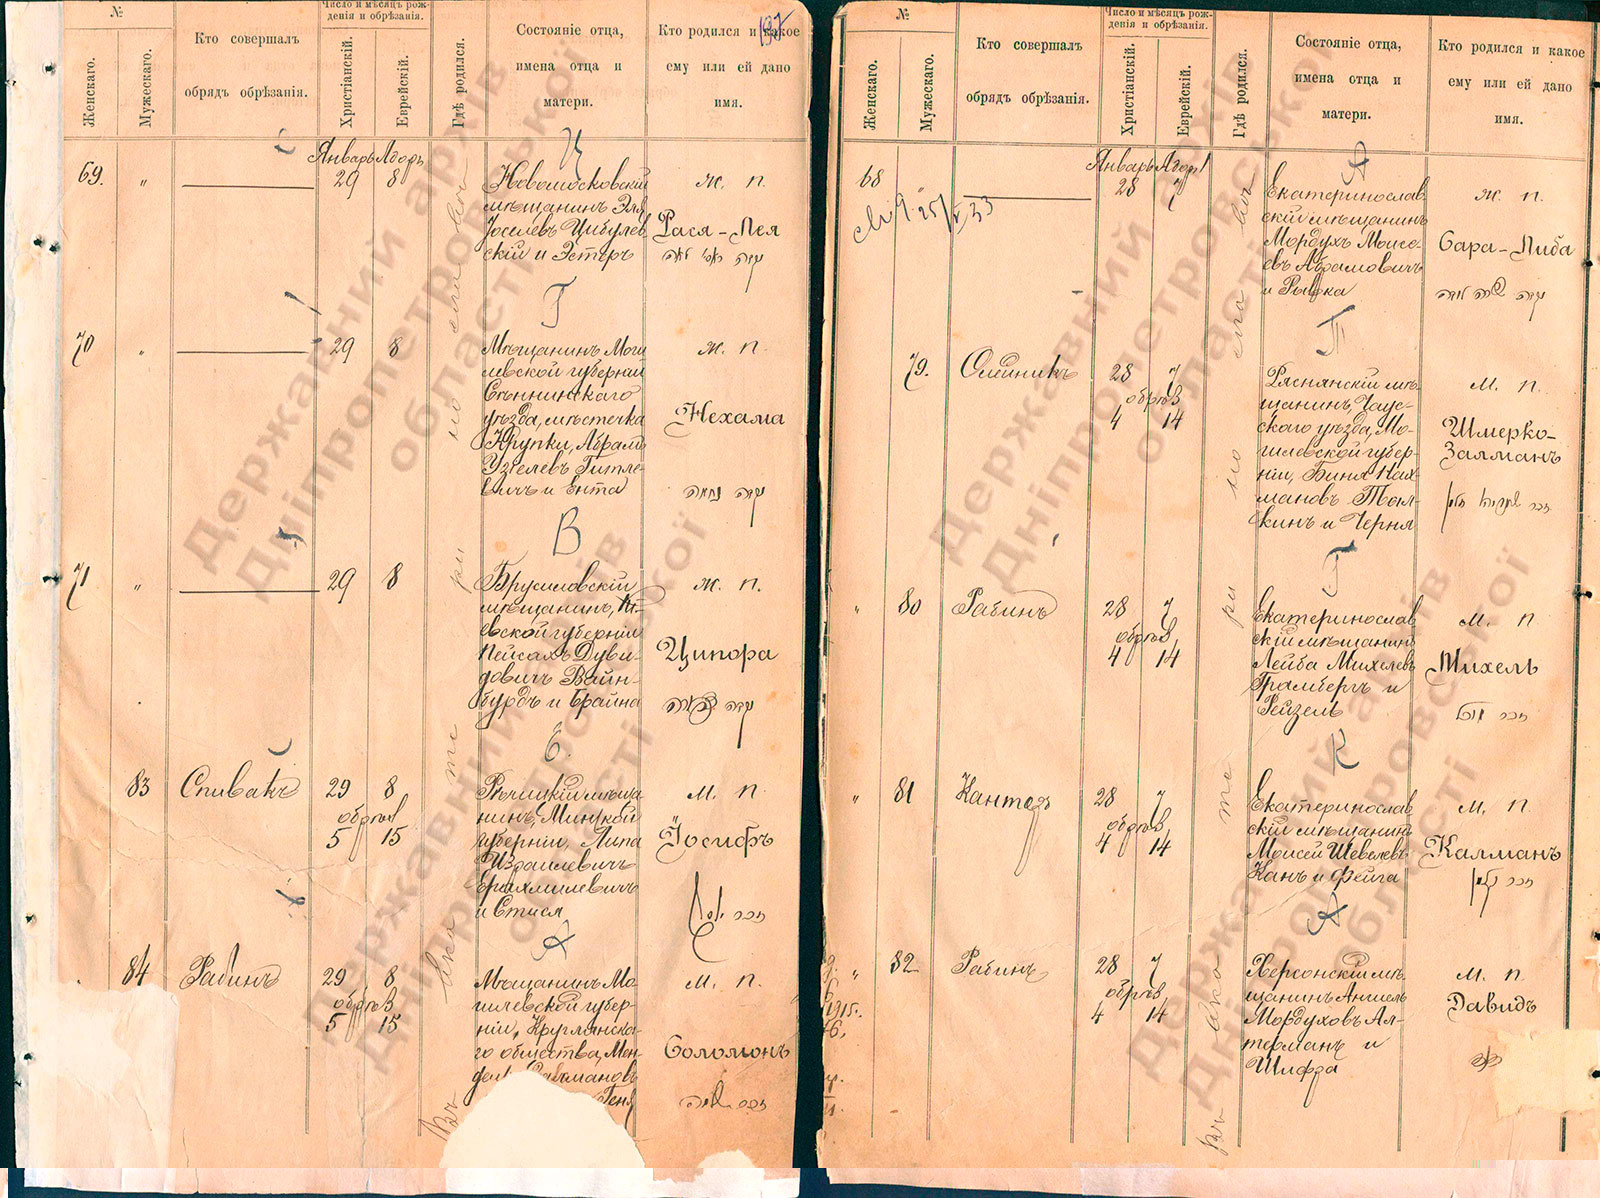 197
№
Женскаго.
Мужескаго.
Кто совершалъ
обрядъ обрѣзанія.
Число и мѣсяцъ рож-
денія и обрѣзанія.
Христіанскій.
Еврейскій.
Гдѣ родился.
Состояніе отца,
имена отца и
матери.
Кто родился и какое
ему или ей дано
имя.
Январь Адоръ
Ц
69. " 29 8
Новомосковскій
мѣщанинъ Эля
Іоселевъ Цибулев
скій и Эстеръ
ж. п.
Рася-Лея
Г
70 " 29 8
Мѣщанинъ Моги
левской губерніи
Сѣннинскаго
уѣзда, мѣстечка
Крупки, Абрамъ
Узіелевъ Гитле-
вичъ и Ента
ж. п.
Нехама
נקבה נחמה
В
71 " 29 8
Брусиловскій
мѣщанинъ, Кі-
евской губерніи
Пейсахъ Дуви-
довичъ Вайн-
бурдъ и Брайна
ж. п.
Ципора
נקבה צפורה
83 Спивакъ 29 8
обрѣз
5 15
Рѣчицкій мѣща
нинъ, Минской
губерніи, Липа
Израилевичъ
и Стися
м. п.
Іосифъ
זכר יוסף
84 Рабинъ 29 8
обрѣз
5 15
Мѣщанинъ Мо-
гилевской губер-
ніи, Круглянска-
го общества, Мен-
Геня
м. п.
Соломонъ
זכר שלמה
Въ Екатеринославѣ
№
Женскаго.
Мужескаго.
Кто совершалъ
обрядъ обрѣзанія.
Число и мѣсяцъ рож-
денія и обрѣзанія.
Христіанскій.
Еврейскій.
Гдѣ родился.
Состояніе отца,
имена отца и
матери.
Кто родился и какое
ему или ей дано
имя.
Январь Адоръ
А
68 28 7
Екатеринослав
скій мѣщанинъ
Мордухъ Моисе-
евъ Абрамовичъ
и Рывка
ж. п.
Сара-Либа
Т
79. Олейникъ 28 7
обрѣз
4 14
Ряснянскій мѣ-
щанинъ, Чаус-
скаго уѣзда, Мо-
гилевской губер-
ніи, Биня Нах-
мановъ Тыл-
кинъ и Черня
м. п.
Шмерко-
Залманъ
Г
" 80 Рабинъ 28 7
обрѣз
4 14
Екатеринослав
скій мѣщанинъ
Лейба Михелевъ
Грамбергъ и
Рейзель
м. п.
Михель
К
" 81 Канторъ 28 7
обрѣз
4 14
Екатеринослав
скій мѣщанинъ
Моисей Шевелевъ
Канъ и Фейга
м. п.
Калманъ
זכר קלמן
А
" 82 Рабинъ 28 7
обрѣз
4 14
Херсонскій мѣ
щанинъ Аншель
Мордуховъ Ал-
терманъ и
Шифра
м. п.
Давидъ
Въ Екатеринославѣ
Державний архів
Дніпропетровської
області